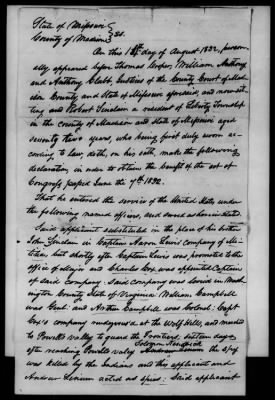 State of Missouri }
County of Madison } SS.
On this 18th day of August 1832, person-
ally appeared before Thomas Cooper, William Anthony
and Anthony Clubb Justices of the County Court of Mad-
ison County and State of Missouri aforesaid, and now sit-
ting and Robert Sinclair a resident of Liberty Township
in the County of Madison and State of Missouri aged
Seventy two years, who being first duly sworn ac-
cording to law, doth, on his oath, make the following
declaration, in order to obtain the benefit of the act of
Congress passed June the 7th 1832.
That he entered the service of the United States under
the following named officers, and served as herein stated.
Said applicant substituted in the place of his brother
John Sinclair in Captain Aaron Lewis company of Mi-
litia, but shortly after Captain Lewis was promoted to the
office of Major and Charles Cox was appointed Captain
of said company. Said company was levied in Wash-
ington County State of Virginia William Campbell
was Genl. and Arthur Campbell was Colonel. Capt
Cox's company rendezvous'd at the Wolf Hills, and marched
to Powell's valley to guard the Frontiers, sixteen days
after reaching Powells valley the spy
was killed by the Indians and this applicant and
Andrew acted as spies: Said applicant